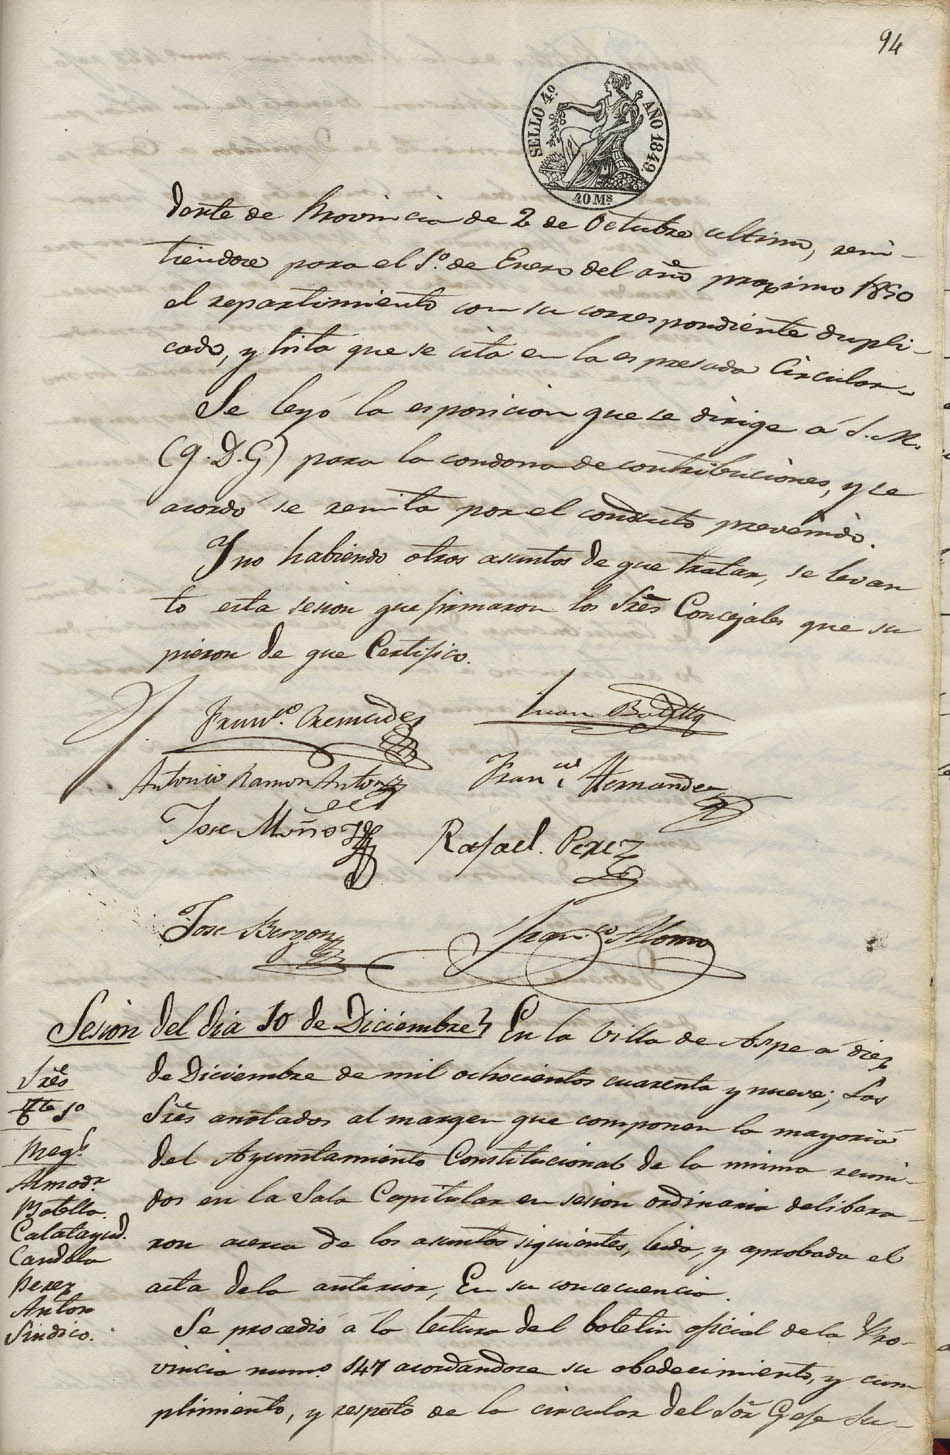 94
SELLO 4º AÑO 1849.
40 Ms
dente de Provincia de 2 de Octubre ultimo, remi-
tiendose para el 1º de Enero del año proximo 1850
el repartimiento con su correspondiente dupli-
cado, y lista que se cita en la espresada Circular.
Se leyó la esposicion que se dirige á S. M.
(q. D. G) para la condona de contribuciones, y se
acordó se remita por el conducto prevenido.
Y no habiendo otros asuntos de que tratar, se levan
to esta sesion que firmaron los Sres Concejales que su
pieron de que Certifico.
Franco. Cremades
Juan Botella
Antonio Ramon Anton
Franco Hernandez
Jose Muñoz
Rafael Perez
Jose Berzon
Franco Alonso
Sesion del dia 10 de Diciembre En la Villa de Aspe á diez
de Diciembre de mil ochocientos cuarenta y nueve; Los
Sres anotados al margen que componen la mayoria
del Ayuntamiento Constitucional de la misma reuni-
dos en la Sala Capitular en sesion ordinaria delibera-
ron acerca de los asuntos siguientes, leida, y aprobada el
acta de la anterior, En su concecuencia.
Sres
Tte 1º
Reg.s
Almodr
Botella
Calatayud.
Candela
Perez
Anton
Sindico.
Se procedió á la lectura del boletin oficial de la Pro-
vincia numo. 147 acordandose su obedecimiento, y cum
plimiento, y respecto de la circular del Sor Gefe Su-